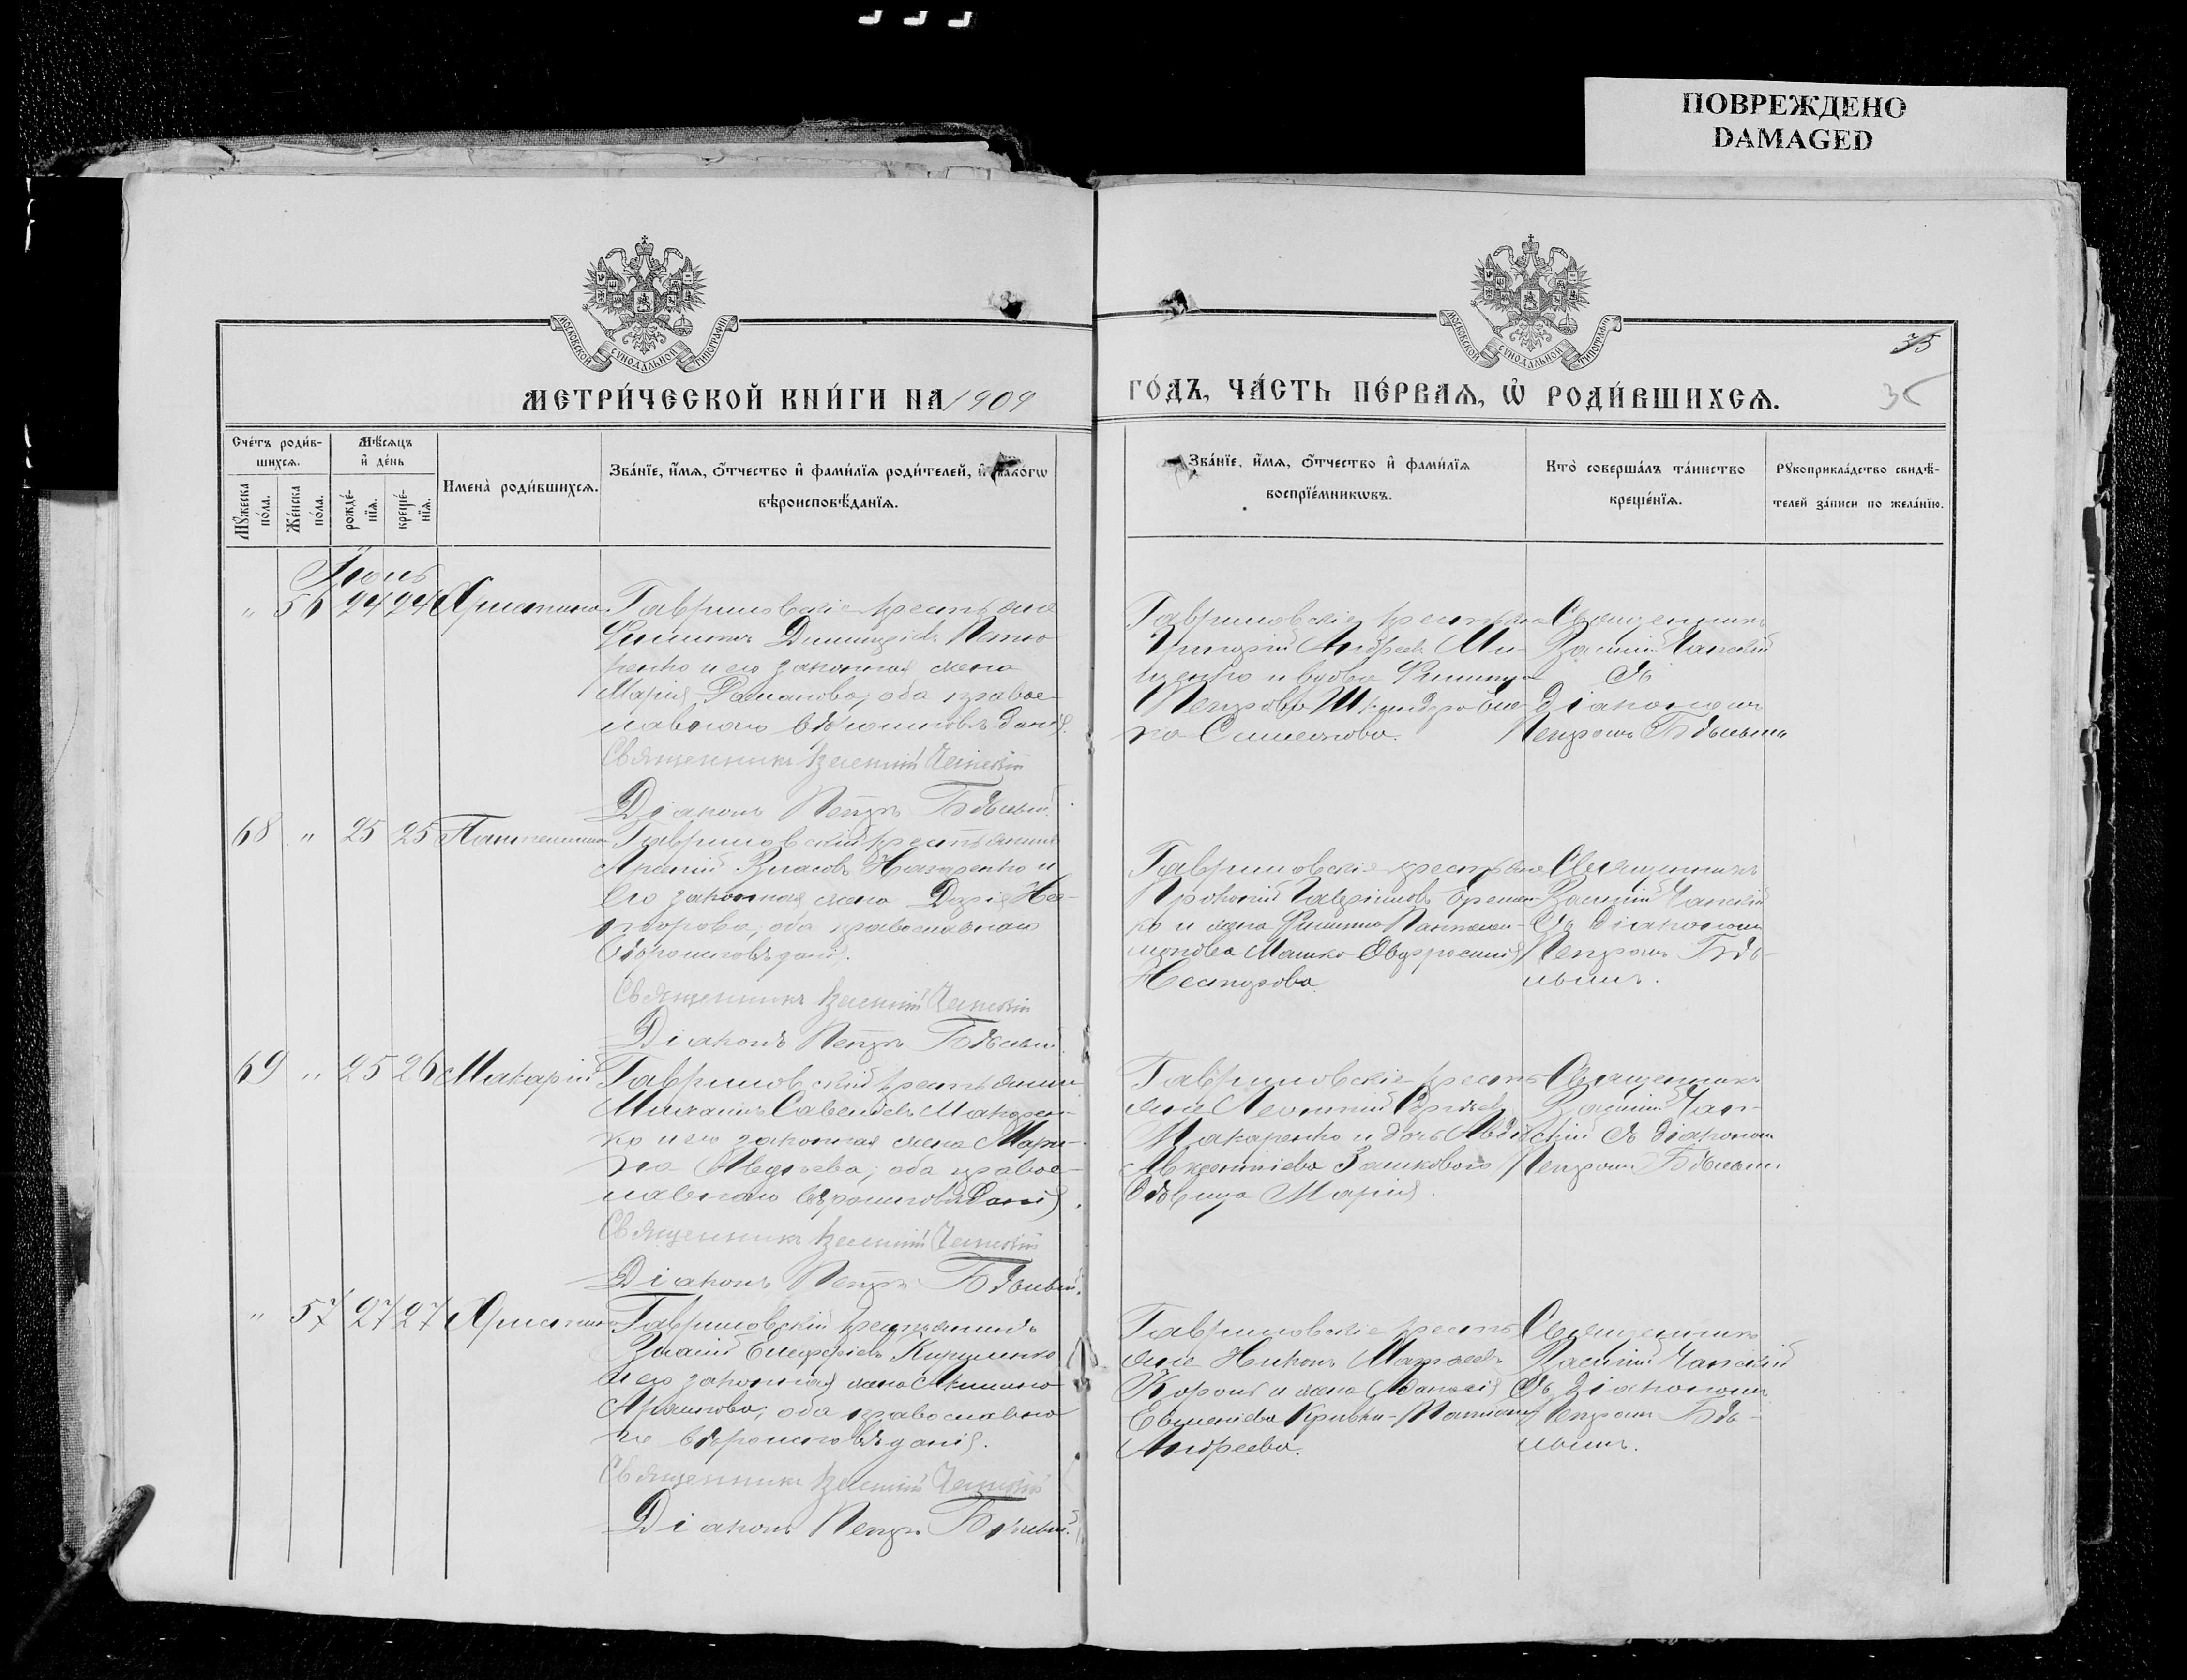 ПОВРЕЖДЕНО
DAMAGED
МОСКОВСКОЙ СѴНОДАЛЬНОЙ ТИПОГРАФІИ
МОСКОВСКОЙ СѴНОДАЛЬНОЙ ТИПОГРАФІИ
35
35
МЕТРИ́ЧЕСКОЙ КНИ́ГИ НА 1909
ГО́ДЪ, ЧА́СТЬ ПЕ́РВАѦ, Ѡ҆ РОДИ́ВШИХСѦ.
Сче́тъ роди́в-
шихсѧ.
Мꙋжеска по́ла.
Же́нска по́ла.
Мѣ́сѧцъ
и҆ де́нь
рожде́-
нїѧ.
креще́-
нїѧ.
И҆мена̀ роди́вшихсѧ.
Зва́нїе, и҆́мѧ, ѻ҆́тчество и҆ фами́лїѧ роди́телей, и҆ какого
вѣроисповѣ́данїѧ.
Зва́нїе, и҆́мѧ, ѻ҆́тчество и҆ фами́лїѧ
воспрїе́мникѡвъ.
Кто̀ соверша́лъ та́инство
креще́нїѧ.
Рꙋкоприкла́дство свидѣ́-
телей за́писи по жела́нїю.
Іюнь
" 56 24 24 Христина
Гавриловскіе крестьяне
Филиппъ Димитріевъ
ренко и его законная жена
Марія Романова; оба правос-
лавнаго вѣроисповѣданія.
Священникъ Василій Чанскій
Діаконъ Петръ Бѣлый.
Гавриловскіе крестьяне
Григорій Андреевъ Ми-
щенко и вдова
Петрова
на Симеонова.
Священникъ
Василій Чанскій
съ
Діакономъ
Петромъ Бѣлымъ
68 " 25 25 Пантелеимонъ
Гавриловскій крестьянинъ
Арсеній Власовъ Назаренко и
его законная жена Дарія Ни-
кифорова; оба православнаго
вѣроисповѣданія.
Священникъ Василій Чанскій
Діаконъ Петръ Бѣлый
Гавриловскіе крестьяне
Прокопій Гавриловъ
ко и жена Филиппа Пантелеи-
монова Машко Евфросинія
Несторова
Священникъ
Василій Чанскій
съ діакономъ
Петромъ Бѣ-
лымъ.
69 " 25 26 Макарій
Гавриловскій крестьянинъ
Михаилъ Савельевъ Макарен-
ко и его законная жена Мари-
на Авдѣева; оба правос-
лавнаго вѣроисповѣданія.
Священникъ Василій Чанскій
Діаконъ Петръ Бѣлый.
Гавриловскіе кресть-
яне Леонтій Сергѣевъ
Макаренко и дочь
Авксентіева
дѣвица Марія.
Священникъ
Василій Чан-
скій съ діакономъ
Петромъ Бѣлымъ
" 57 27 27 Христина
Гавриловскій крестьянинъ
Власій Елевферіевъ Кириленко
и его законная жена Акилина
Архипова; оба православна-
го вѣроисповѣданія.
Священникъ Василій Чанскій
Діаконъ Петръ Бѣлый.
Гавриловскіе кресть-
яне Никонъ Матѳеевъ
Коронь и жена Аѳанасія
Евменіева
Андреева.
Священникъ
Василій Чанскій
съ діакономъ
Петромъ Бѣ-
лымъ.